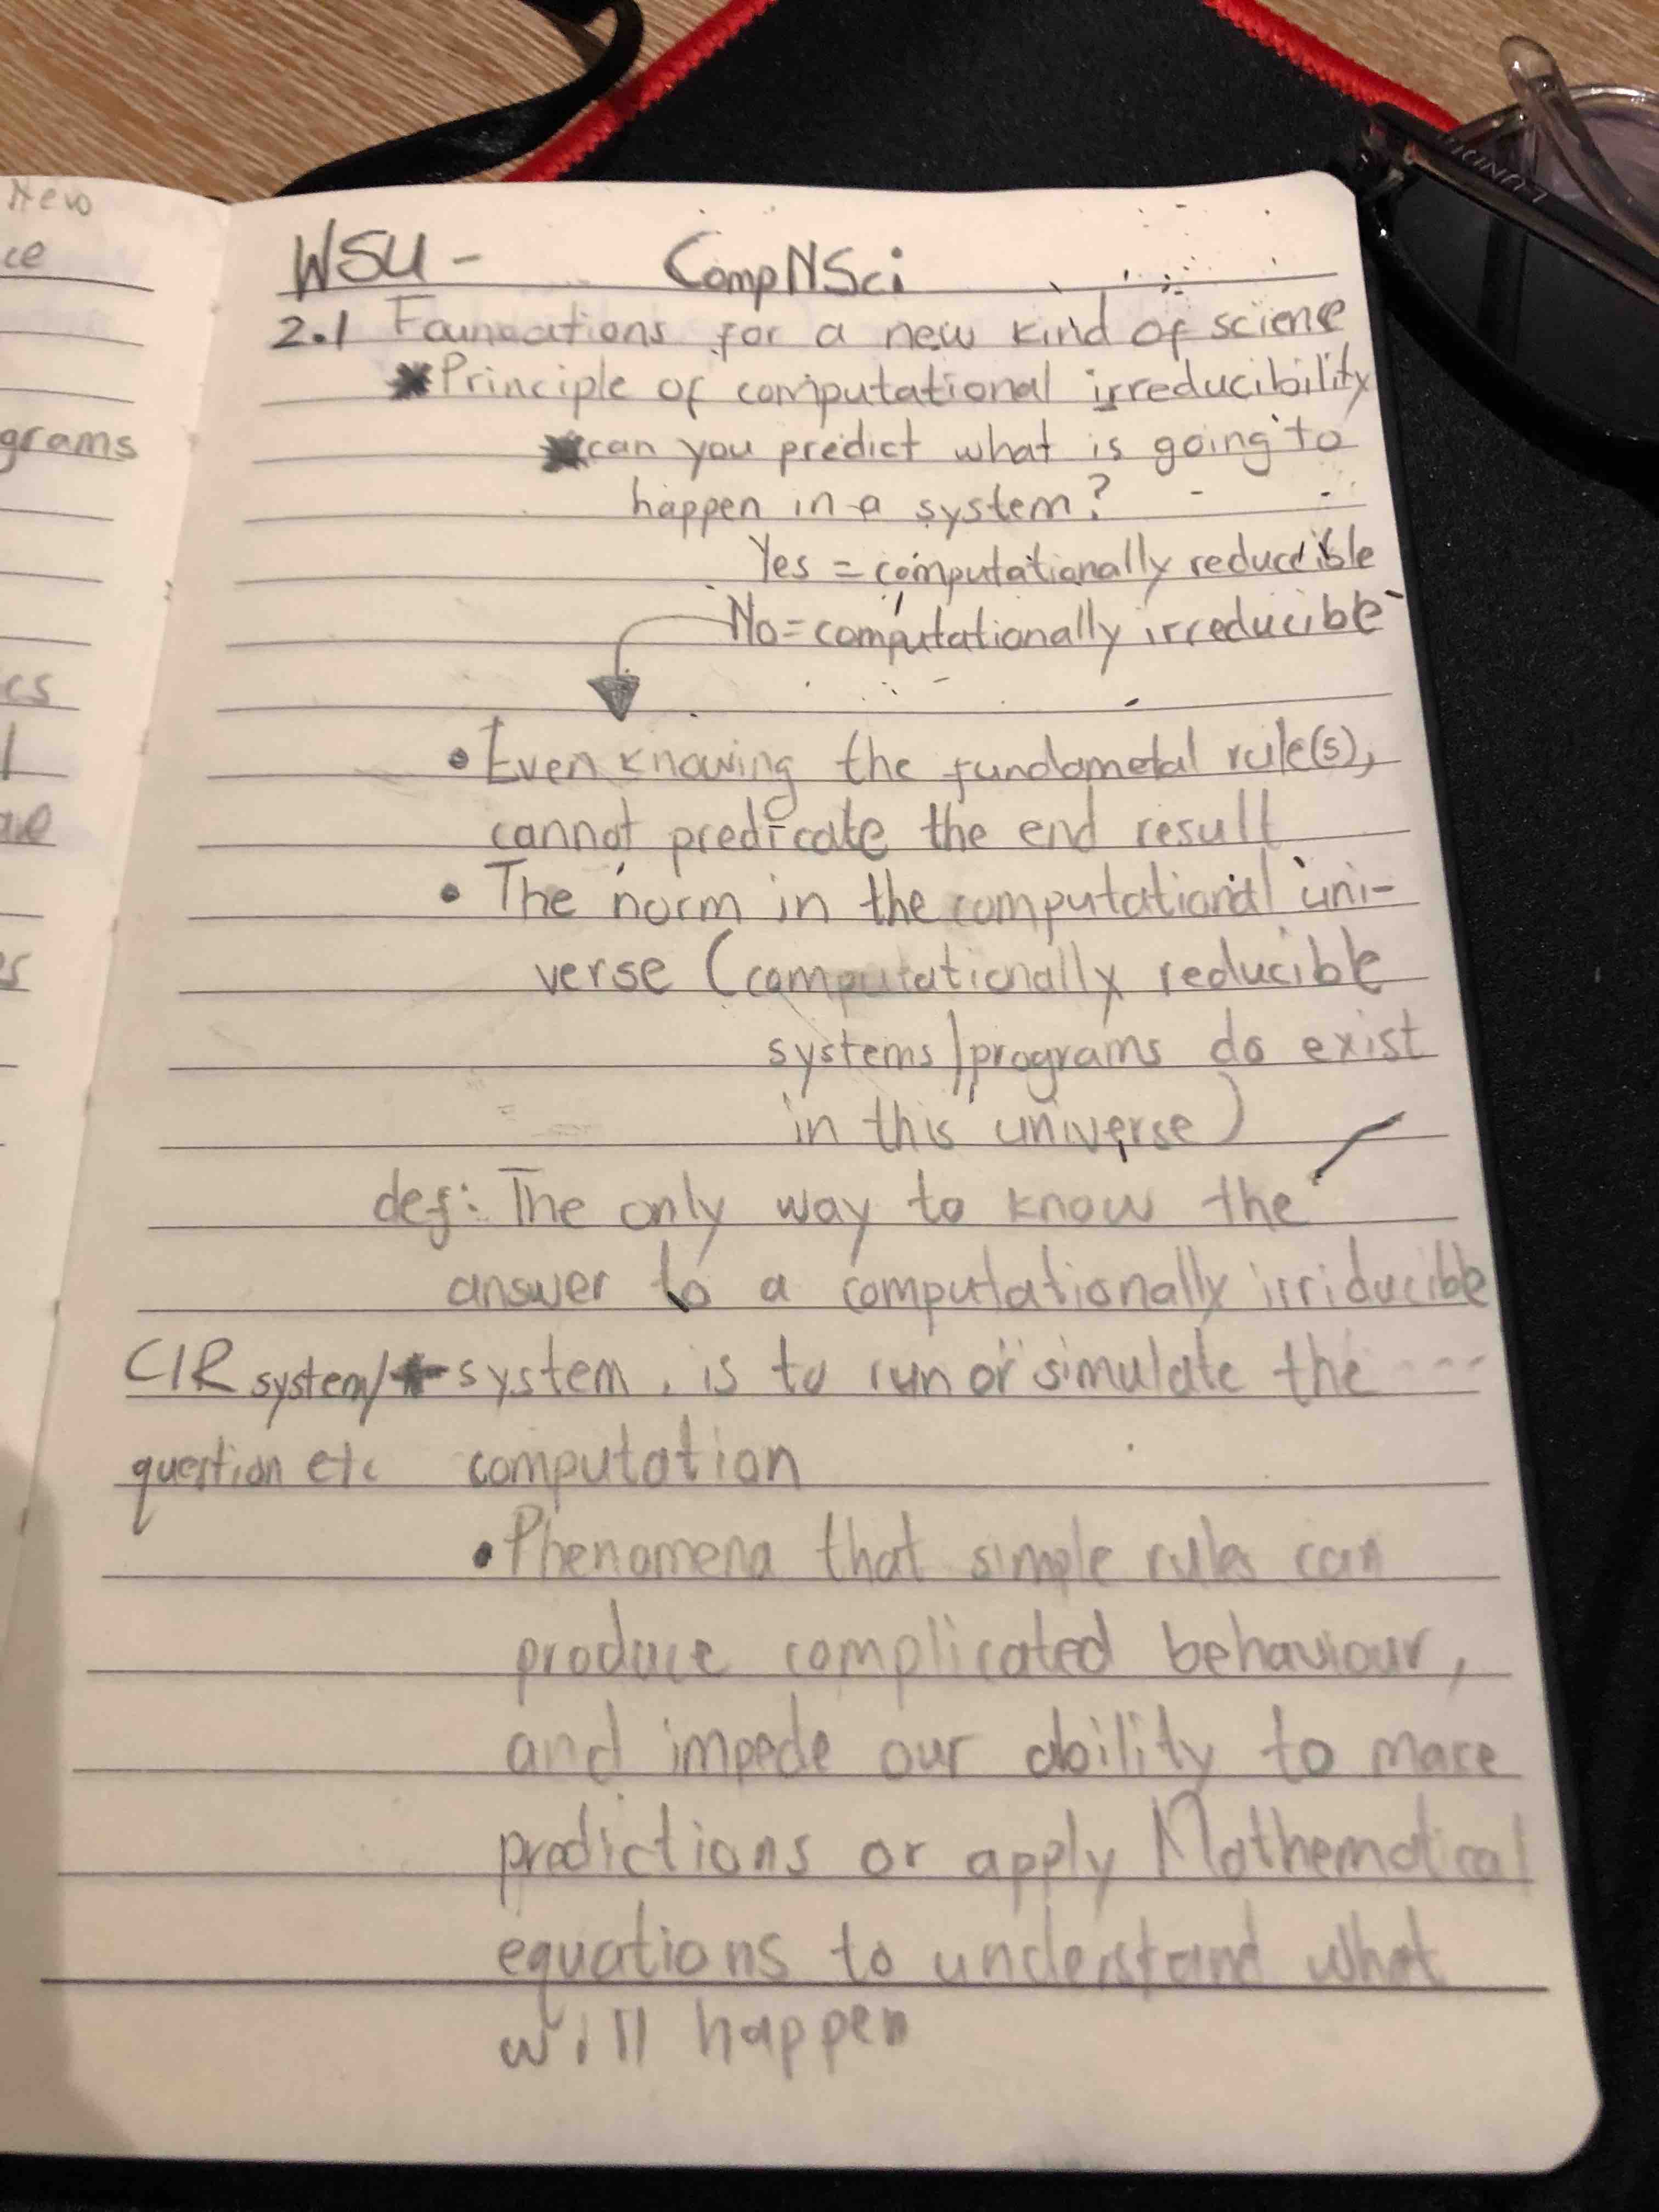 New
ce
grams
cs
l
ae
es
WSU - CompNSci
2.1 Foundations for a new kind of science
Principle of computational irreducibility
can you predict what is going to
happen in a system?
Yes = computationally reducible
No = computationally irreducible
• Even knowing the fundametal rule(s),
cannot predicate the end result
• The norm in the computational uni-
verse (computationally reducible
systems/programs do exist
in this universe)
def: The only way to know the
answer to a computationally irriducible
CIR system/ system, is to run or simulate the
question etc computation
• Phenomena that simple rules can
produce complicated behaviour,
and impede our ability to make
predictions or apply Mathematical
equations to understand what
will happen